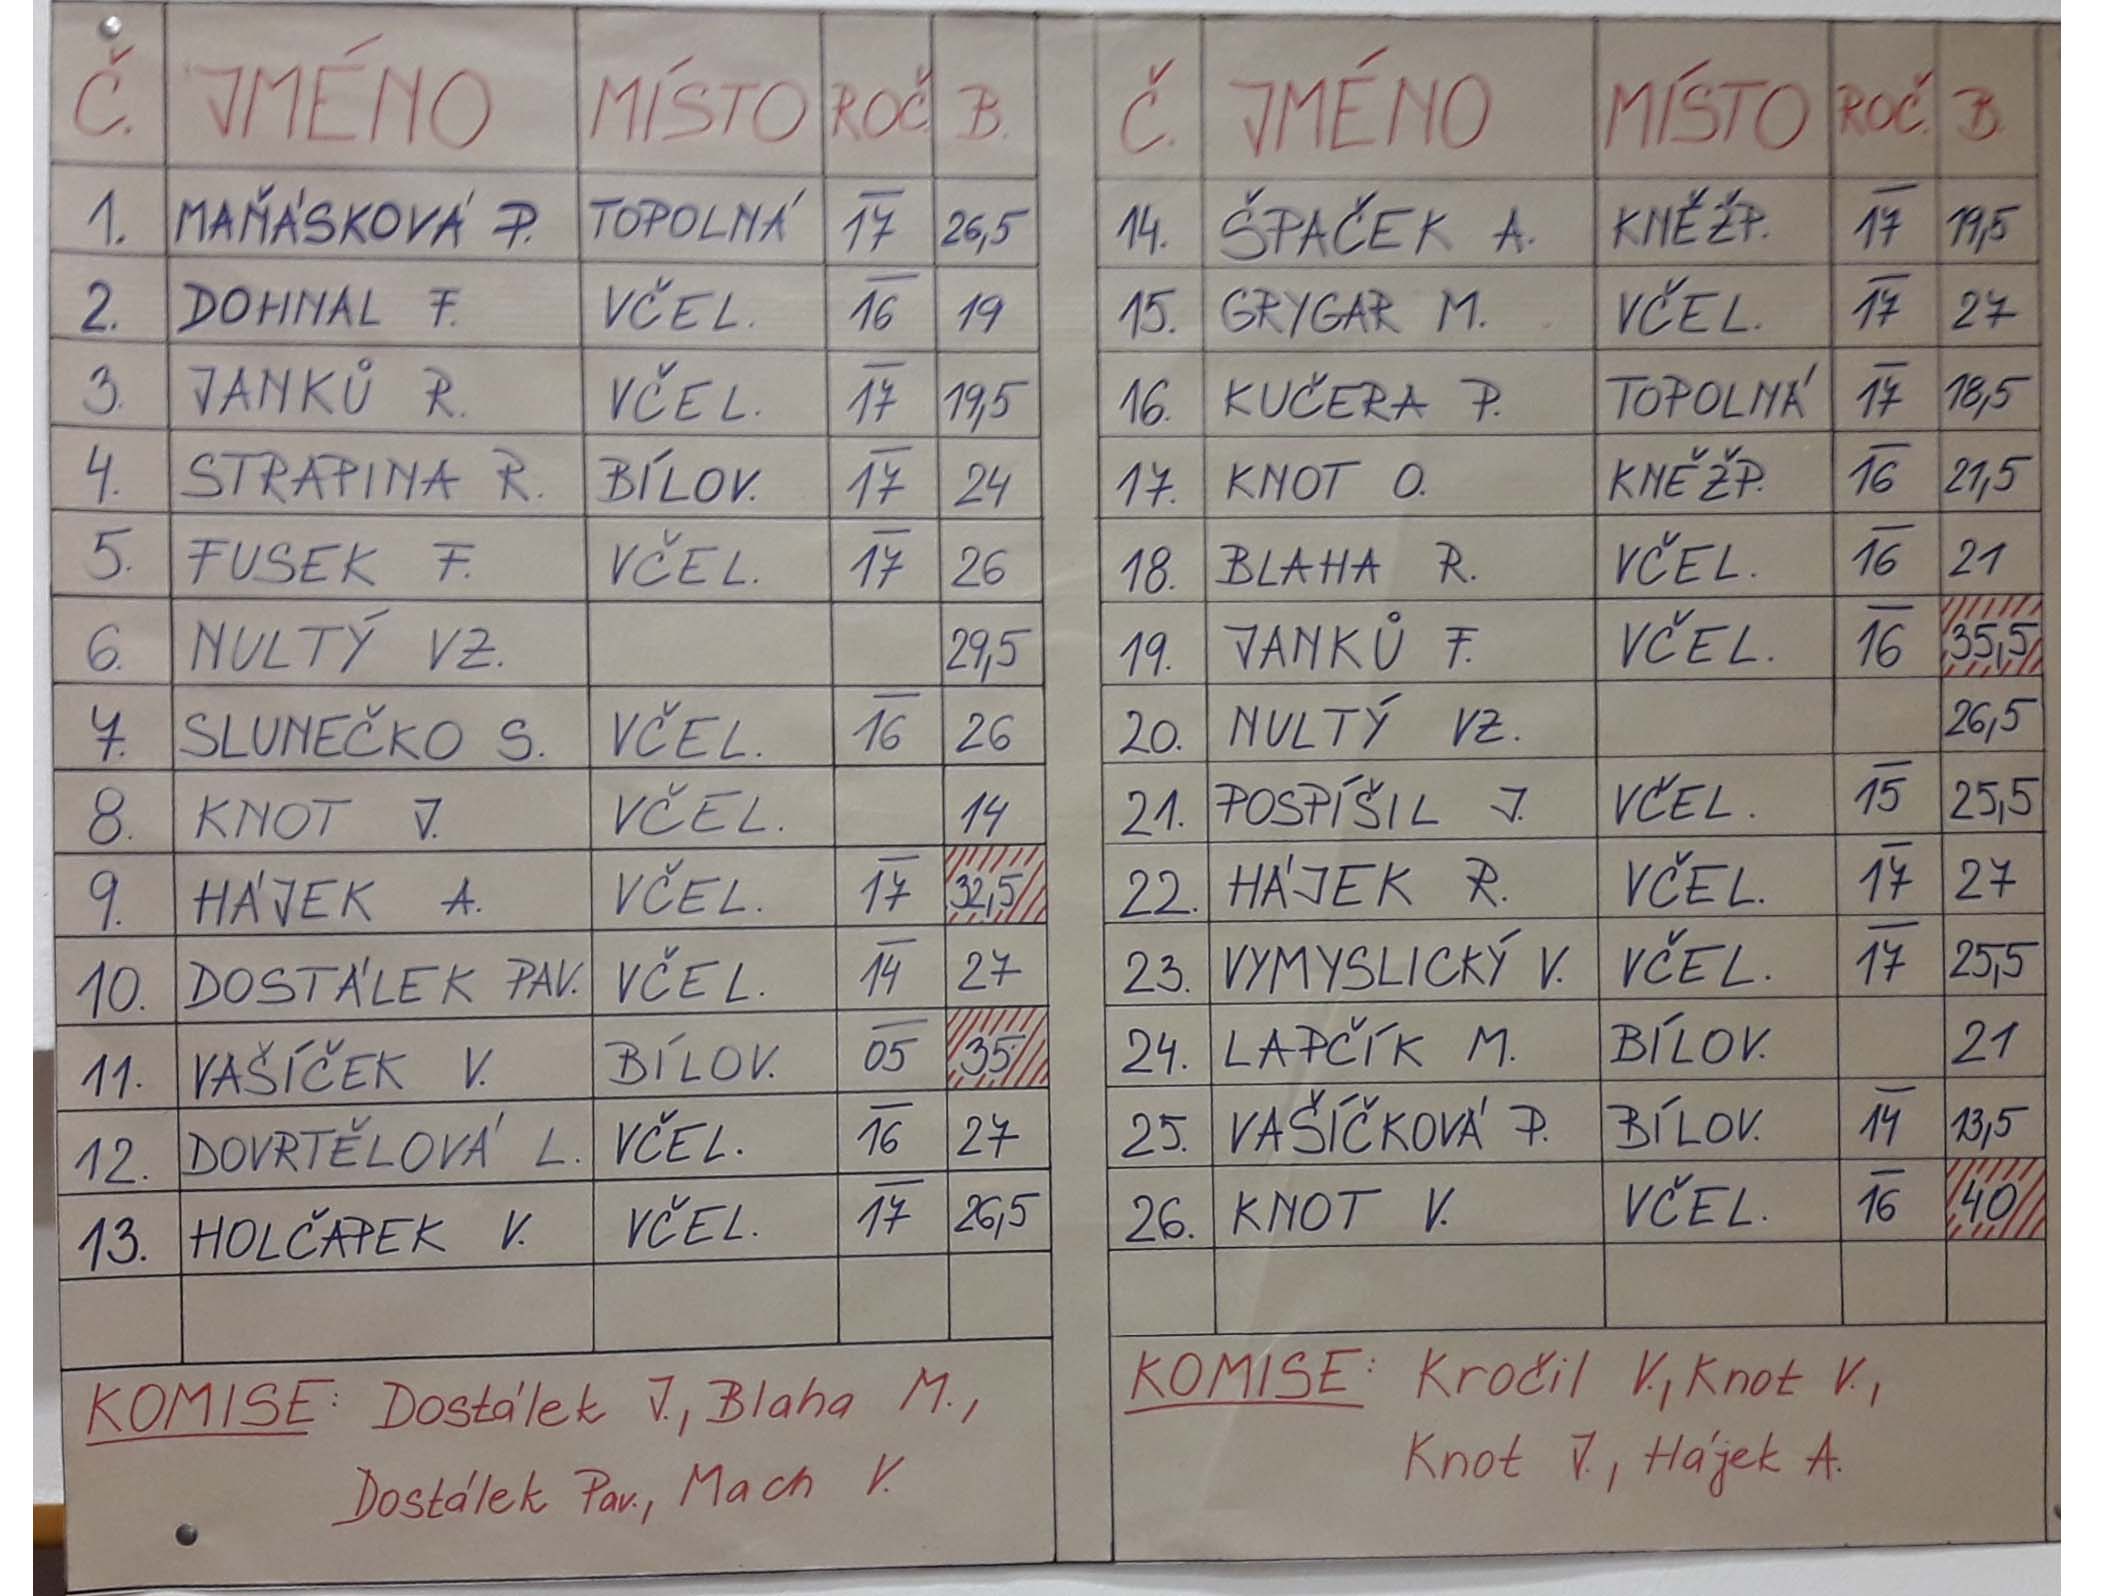 Č. JMÉNO MÍSTO ROČ. B.
1. MAŇÁSKOVÁ P. TOPOLNÁ 17 26,5
2. DOHNAL F. VČEL. 16 19
3. JANKŮ R. VČEL. 17 19,5
4. STRAPINA R. BÍLOV. 17 24
5. FUSEK F. VČEL. 17 26
6. NULTÝ VZ. 29,5
7. SLUNEČKO S. VČEL. 16 26
8. KNOT J. VČEL. 14
9. HÁJEK A. VČEL. 17 32,5
10. DOSTÁLEK PAV. VČEL. 14 27
11. VAŠÍČEK V. BÍLOV. 05 35
12. DOVRTĚLOVÁ L. VČEL. 16 27
13. HOLČAPEK V. VČEL. 17 26,5
KOMISE: Dostálek J., Blaha M.,
Dostálek Pav., Mach V.
Č. JMÉNO MÍSTO ROČ. B.
14. ŠPAČEK A. KNĚŽP. 17 19,5
15. GRYGAR M. VČEL. 17 27
16. KUČERA P. TOPOLNÁ 17 18,5
17. KNOT O. KNĚŽP. 16 21,5
18. BLAHA R. VČEL. 16 21
19. JANKŮ F. VČEL. 16 35,5
20. NULTÝ VZ. 26,5
21. POSPÍŠIL J. VČEL. 15 25,5
22. HÁJEK R. VČEL. 17 27
23. VYMYSLICKÝ V. VČEL. 17 25,5
24. LAPČÍK M. BÍLOV. 21
25. VAŠÍČKOVÁ P. BÍLOV. 14 13,5
26. KNOT V. VČEL. 16 40
KOMISE: Kročil V., Knot V.,
Knot J., Hájek A.